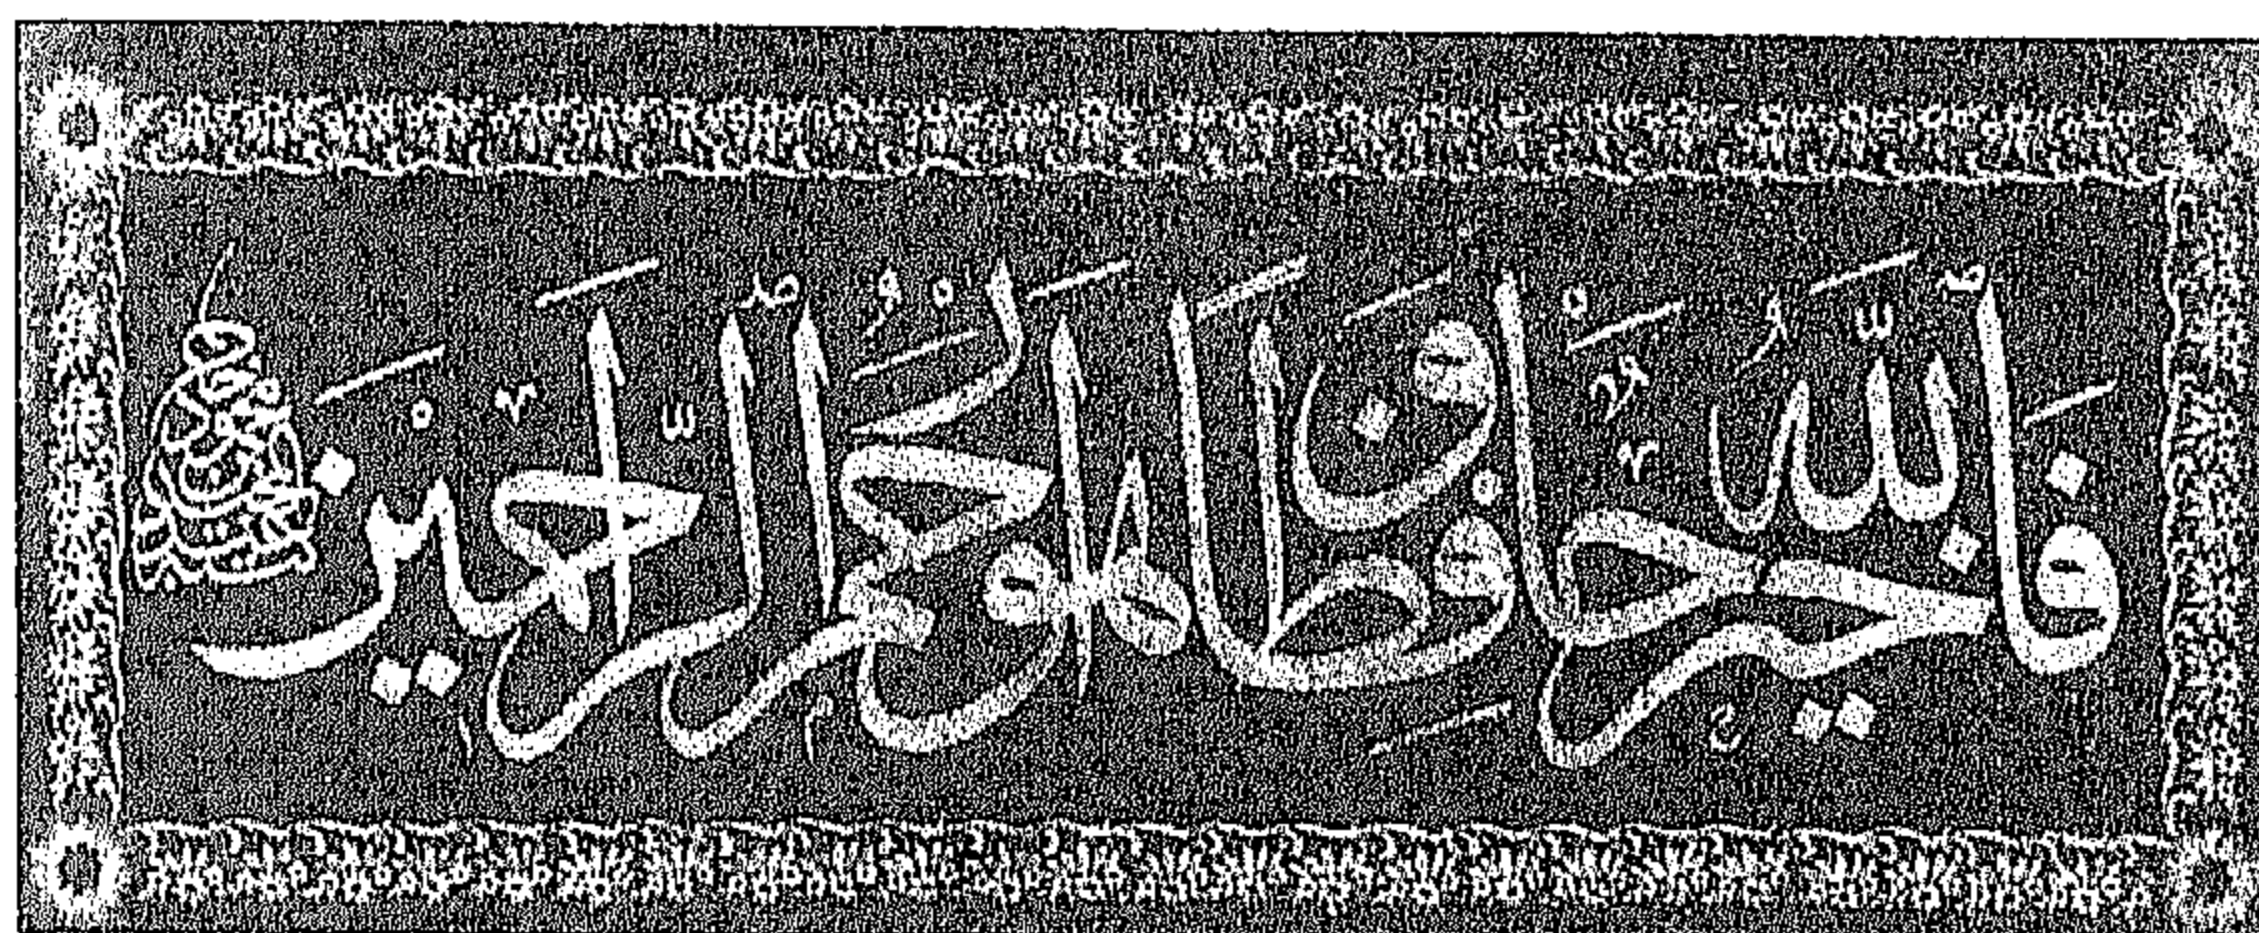 فَٱللَّهُ خَيْرٌ حَافِظًا وَهُوَ أَرْحَمُ ٱلرَّاحِمِينَ